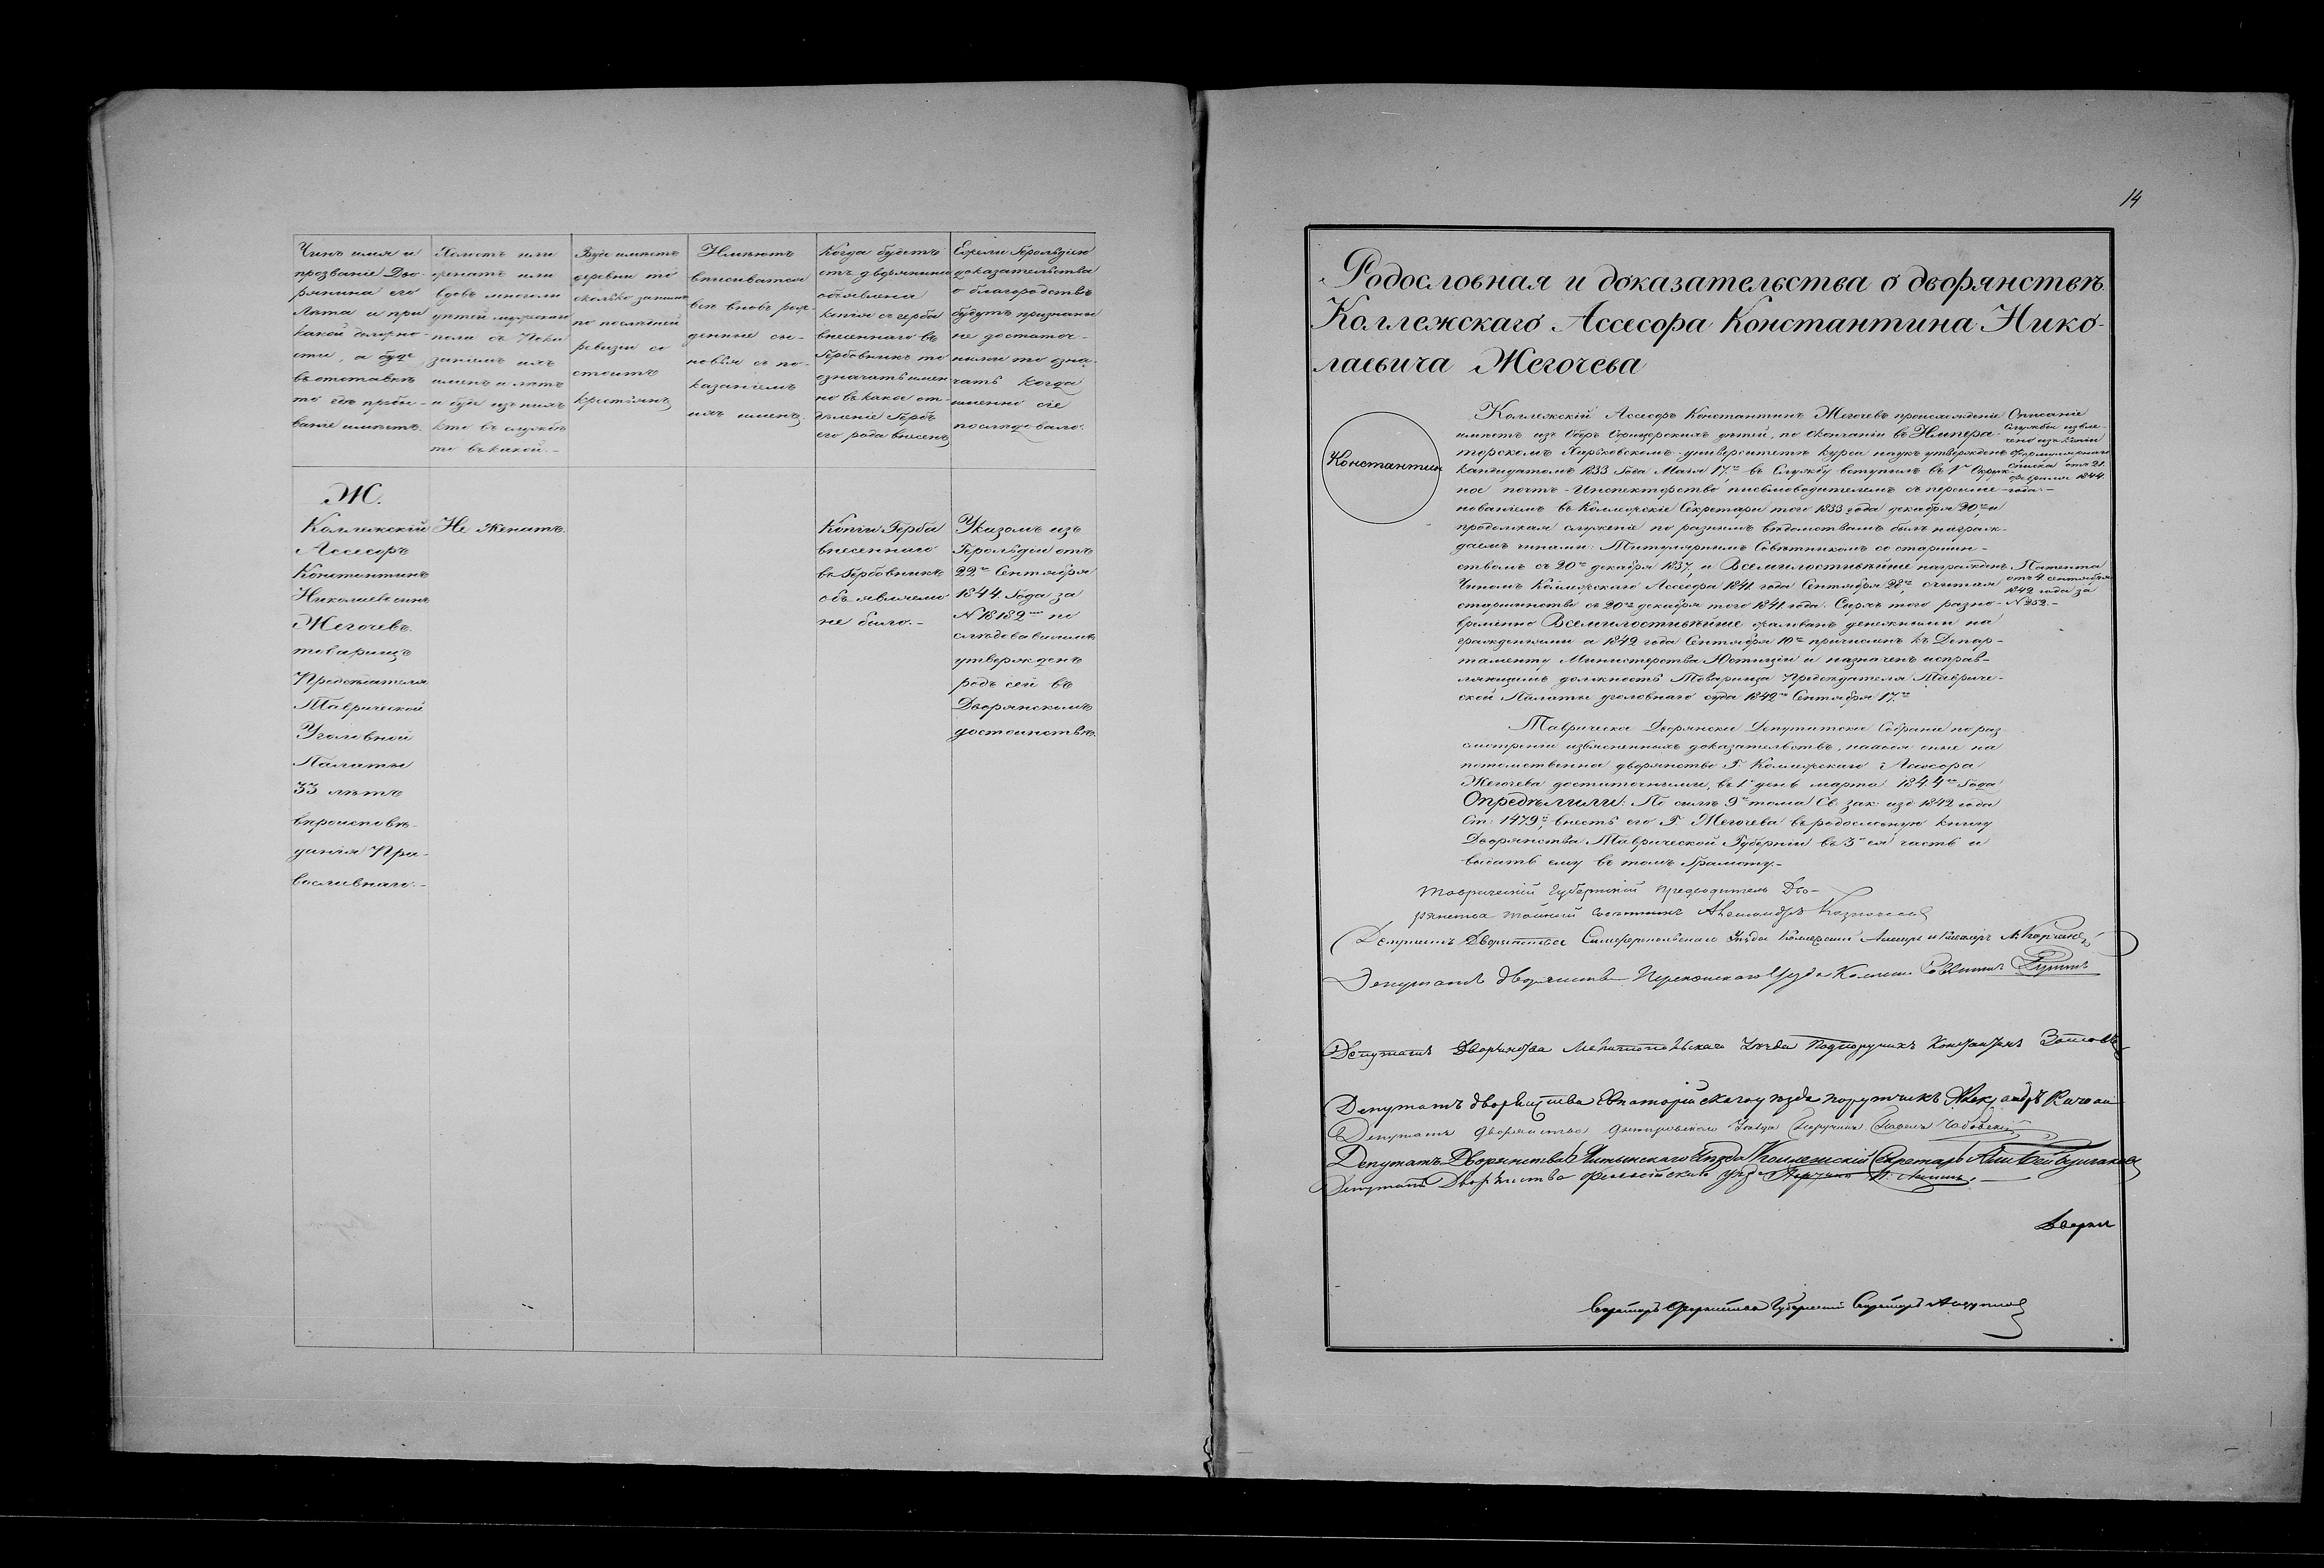 Чинъ имя и
прозваніе Дво-
рянина его
лѣта и при
какой должно-
сти, а буде
въ отставкѣ
то гдѣ пребы-
ваніе имѣетъ.
Холостъ или
женатъ или
вдовъ много ли
дѣтей мужескаго
пола съ Пока
заніемъ ихъ
именъ и лѣтъ
и буде изъ нихъ
кто въ службѣ
то въ какой.-
Буде имѣетъ
деревни то
сколько за нимъ
по послѣдней
ревизіи со
стоитъ
крестьянъ
Имѣютъ
вписиватся
всѣ вновь рож-
денные сы-
новья съ по-
казаніемъ
ихъ именъ.
Когда будетъ
отъ дворянина
объявлена
копія съ герба
внесеннаго въ
Гербовникъ то
означать имен
но въ какое от-
дѣленіе Гербъ
его рода внесенъ
Ежели Герольдіею
доказательства
о благородствѣ
будутъ признаны
не достаточ-
ными то озна-
чать когда
именно сіе
послѣдовало.
Ж.
Коллежскій
Ассесоръ
Константинъ
Николаевъ сынъ
Жегочевъ.
товарищъ
Предсѣдателя
Таврической
Уголовной
Палаты
33 лѣтъ
вѣроисповѣ-
данія Пра-
вославнаго.-
Не Женатъ.
Копіи Герба
внесеннаго
въ Гербовникъ
объявляемо
не было.-
Указомъ изъ
Герольдіи отъ
22го Сентября
1844. Года за
N 18182мъ по
слѣдовавшимъ
утвержденъ
родъ сей въ
Дворянскомъ
достоинствѣ.
14
Родословная и доказательства о дворянствѣ
Коллежскаго Ассесора Константина Нико-
лаевича Жегочева
Константинъ
Коллежскій Ассесоръ Константинъ Жегочевъ происхожденіе
имѣетъ изъ Оберъ Офицерскихъ дѣтей, по окончаніи въ Импера-
торскомъ Харьковскомъ университетѣ курса наукъ утвержденъ
кандидатомъ 1833 Года Маія 17го въ Службу вступилъ въ 1е Окруж-
ное почтъ-Инспекторство письмоводителемъ съ переиме-
нованіемъ въ Коллежскіе Секретари того 1833 года декабря 20го и
продолжая служеніе по разнымъ вѣдомствамъ былъ награж-
даемъ чинами: Титулярнымъ Совѣтникомъ со старшин-
ствомъ съ 20го декабря 1837, и Всемилостивѣйше награжденъ
Чиномъ Коллежскаго Ассесора 1841 года Сентября 28го, считая
старшинство съ 20го декабря того 1841 года. Сверхъ того разно-
временно Всемилостивѣйше жалованъ денежными на
гражденіями а 1842 года Сентября 10го причисленъ къ Депар-
таменту Министерства Юстиціи и назначенъ исправ-
ляющимъ должность Товарища Предсѣдателя Тавриче-
ской Палаты уголовнаго суда 1842го Сентября 17го
Описаніе
Службы извле-
чено изъ копіи
формулярнаго
списка отъ 21.
февраля 1844.
года.-
Патента
отъ 4 сентября
1842 года за
N 252.-
Таврическое Дворянское Депутатское Собраніе по раз
смотреніи изъясненныхъ доказательствъ, находя оные на
потомственное дворянство Г. Коллежскаго Ассесора
Жегочева достаточными, въ 1й день марта 1844го Года
Опредѣлили: По силѣ 9го тома Св. зак. изд 1842 года
Ст: 1479й, внесть его Г. Жегочева въ родословную книгу
Дворянства Таврической Губерніи въ 3ю ея часть и
выдать ему въ томъ Грамоту.-
Таврическій Губернскій предводитель Дво-
рянства тайный Совѣтникъ Александръ Казначеевъ
Депутатъ Дворянства Симферопольскаго Уѣзда Коллежскій Ассесоръ и Кавалеръ
Депутатъ дворянства Перекопскаго Уѣзда Коллеж. Совѣтникъ
Депутатъ Дворянства Мелитопольскаго Уѣзда Подпоручикъ Константинъ Зотовъ
Депутатъ дворянства Евпаторійскаго уѣзда поручикъ Александръ
Депутатъ Дворянства Днѣпровскаго Уѣзда Поручикъ Павелъ
Депутатъ Дворянства Ялтынскаго Уѣзда Коллежскій Секретарь Али Бей Булгаковъ
Депутатъ Дворянства Феодосійскаго Уѣзда
Секретарь Дворянства Губернскій Секретарь